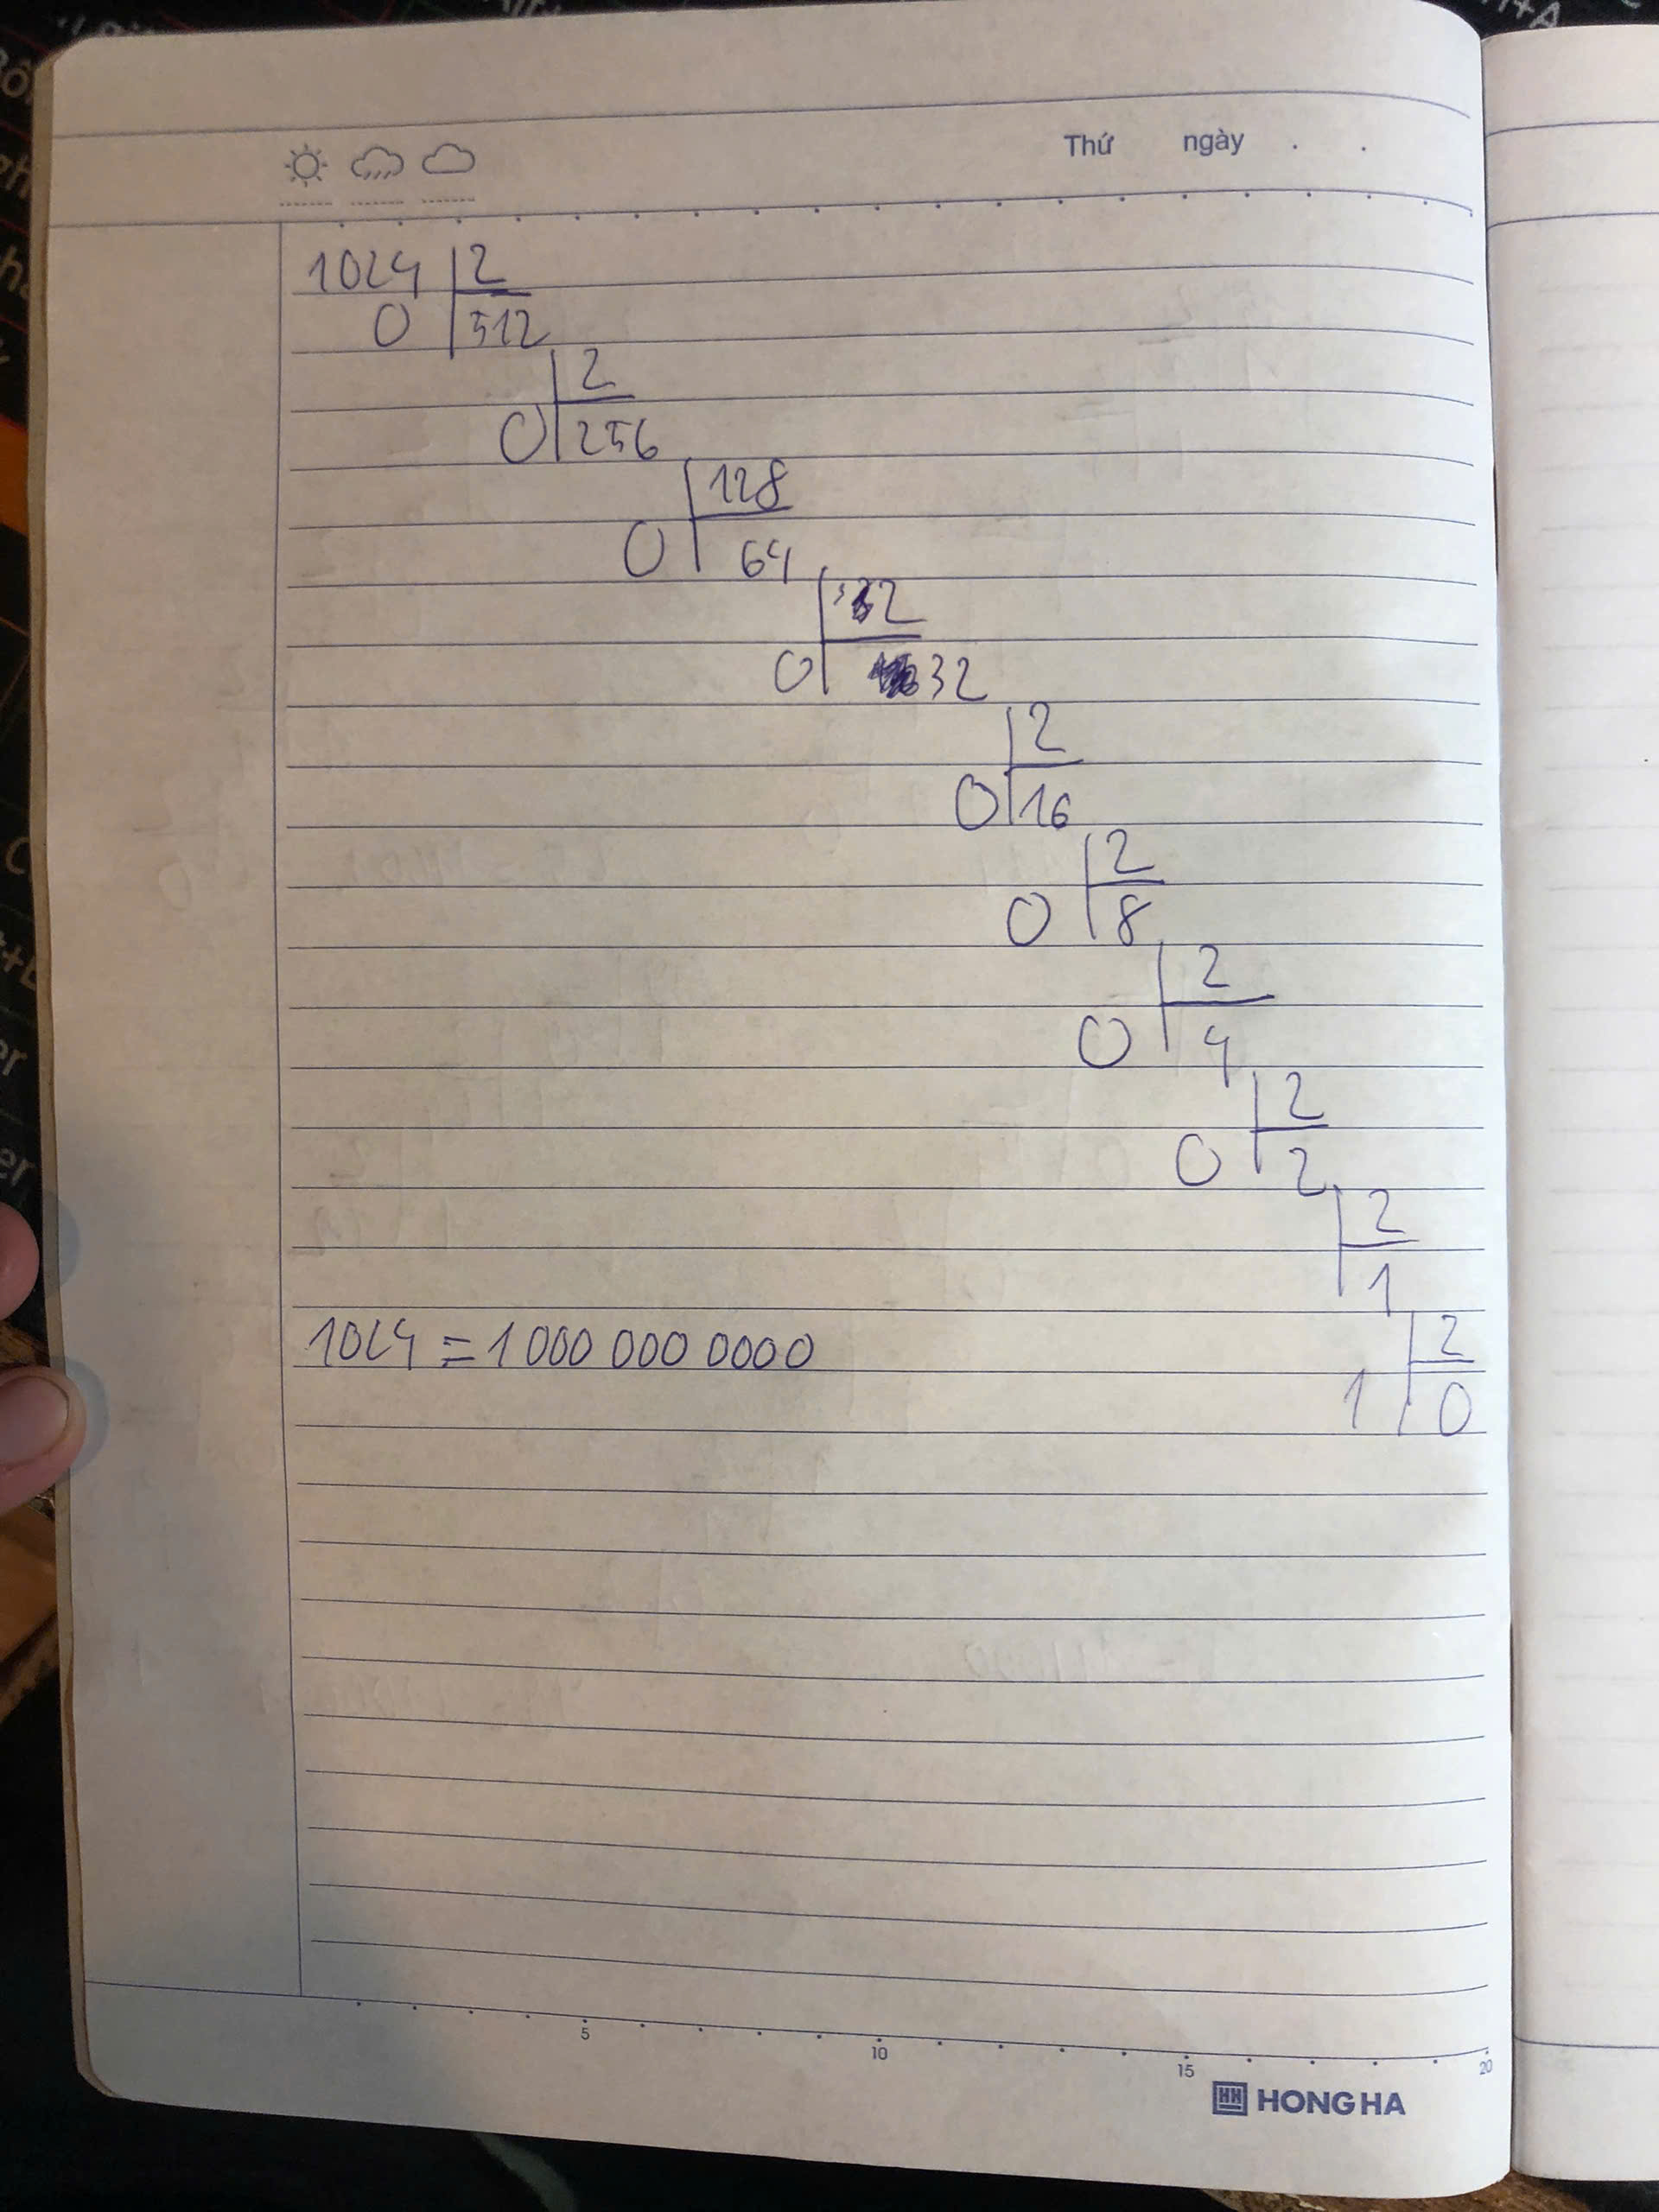 Thứ ngày . .
1024 2
0 512
2
0 256
128
0 64
32
0 32
2
0 16
2
0 8
2
0 4
2
0 2
2
1
1024 = 1 000 000 0000
2
1 0
5 10 15 20
HH HONG HA